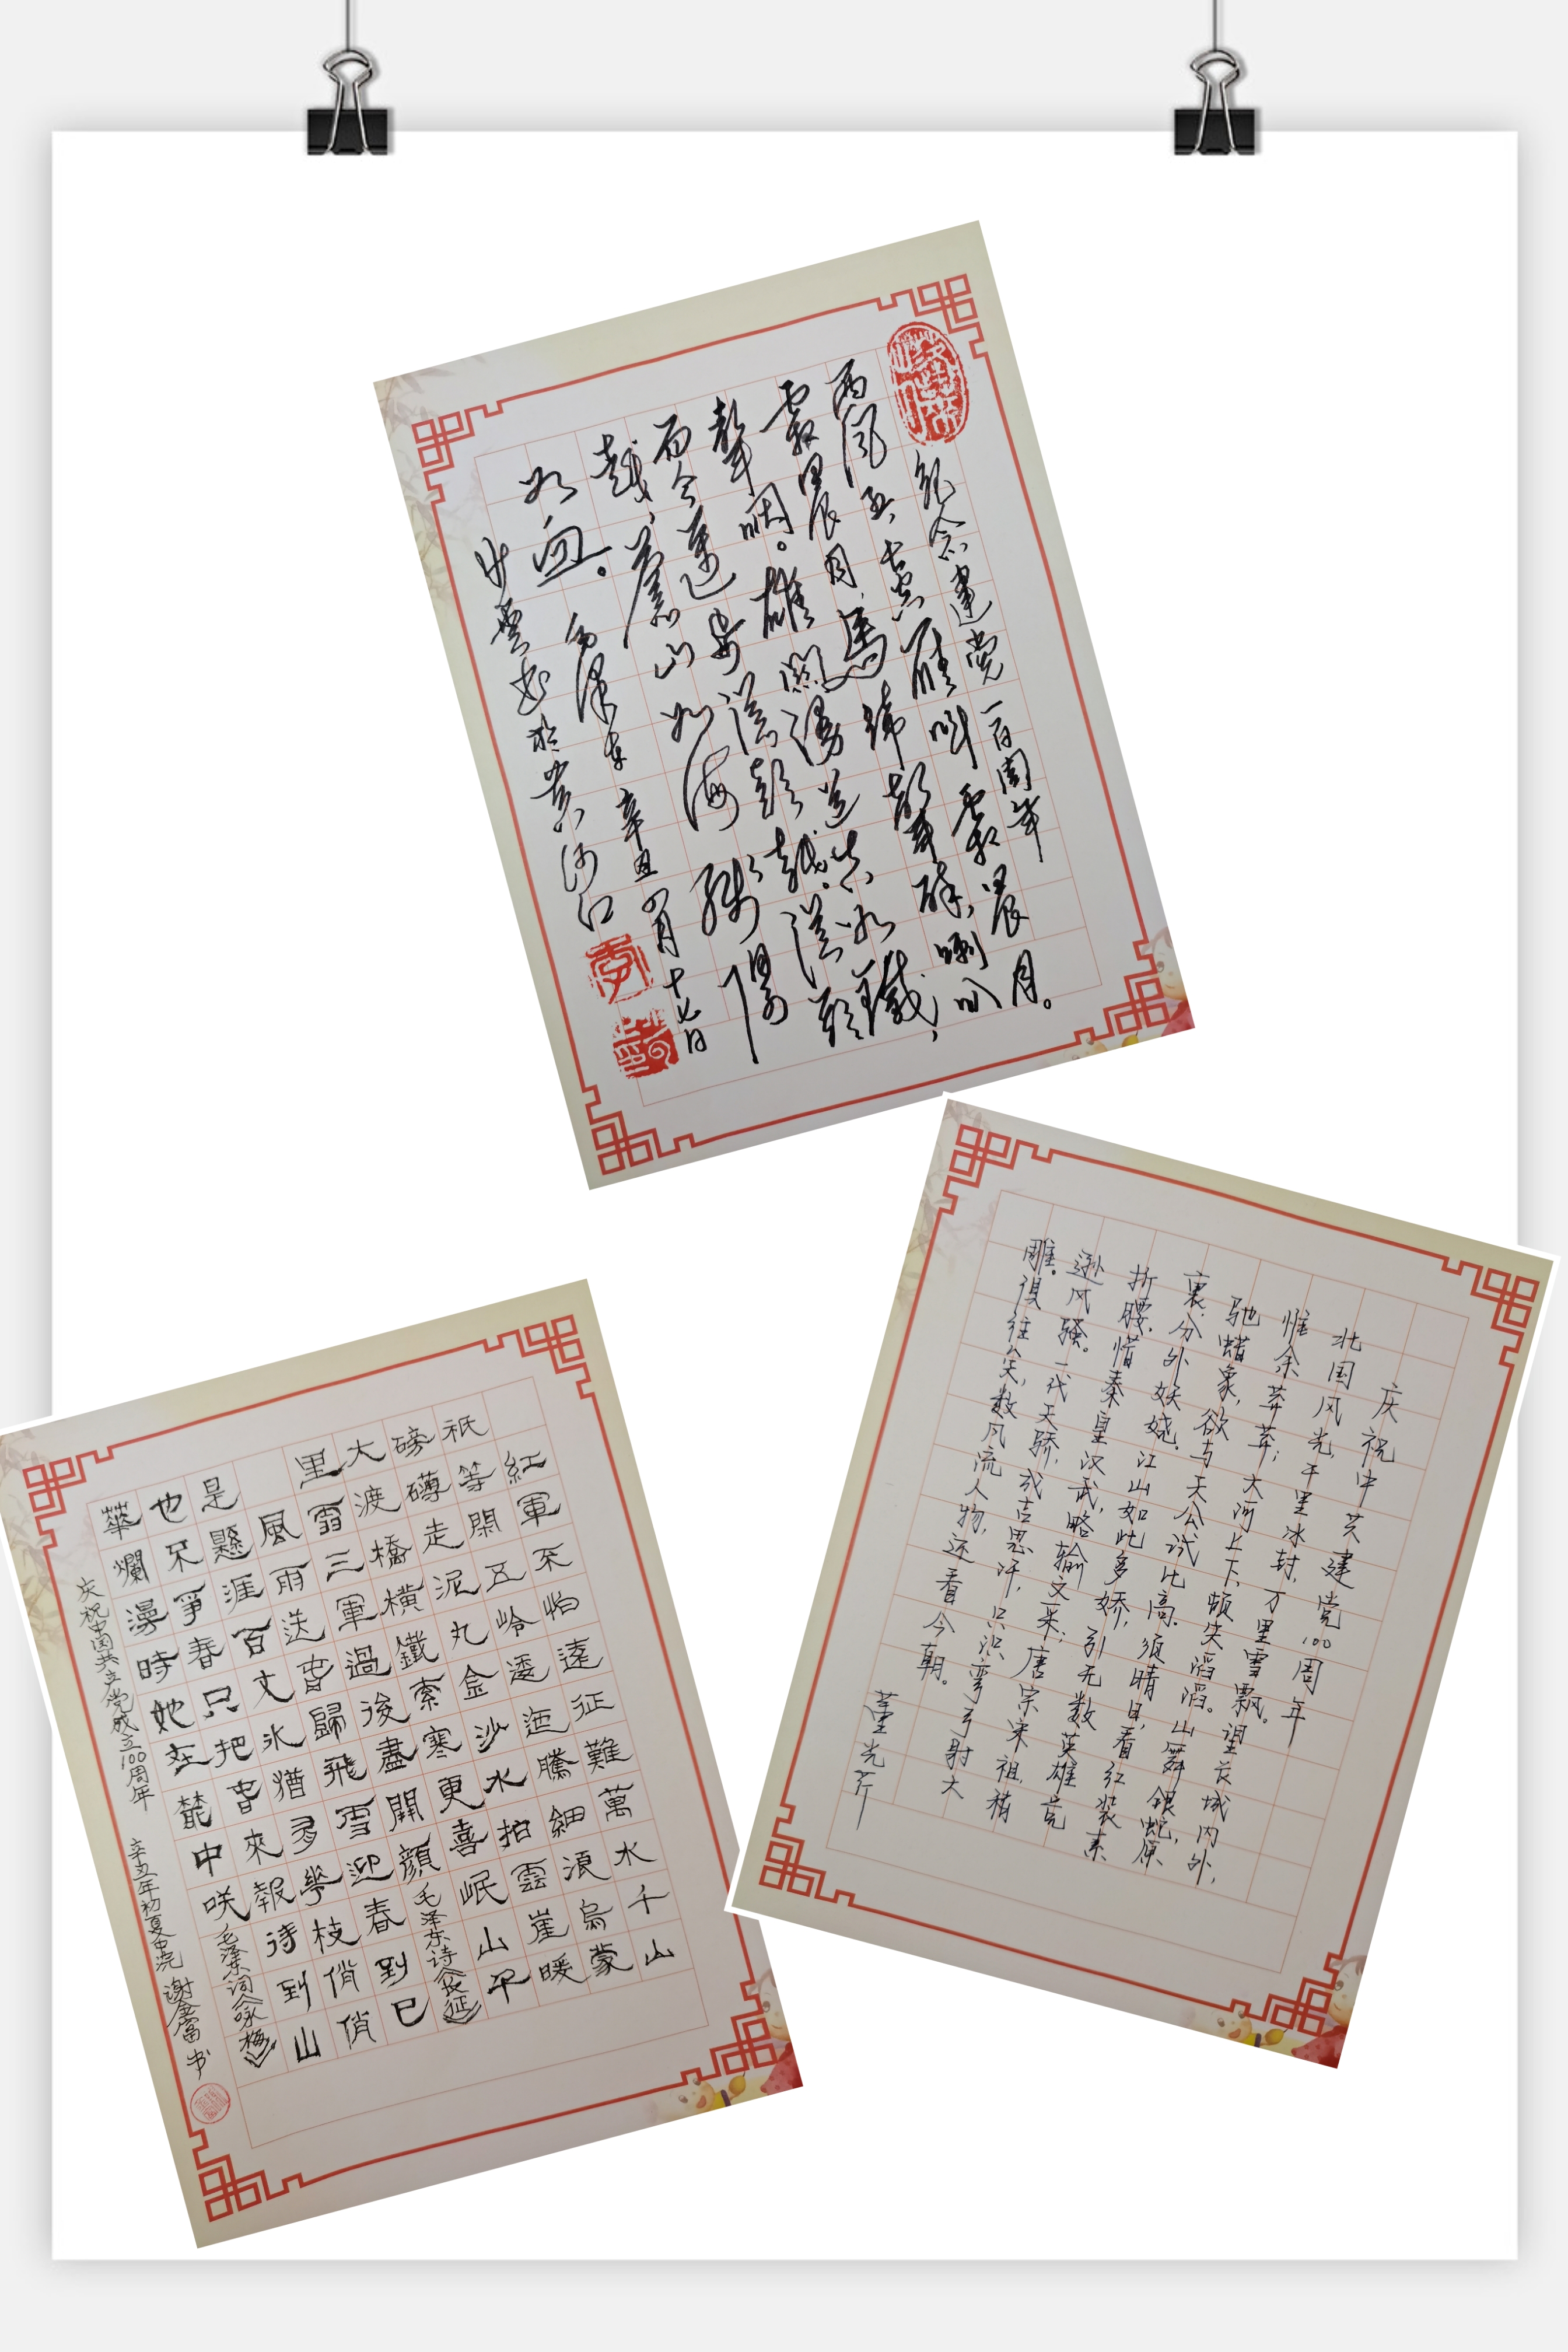 纪念建党一百周年
西风烈,長空雁叫霜晨月。
霜晨月,馬蹄聲碎,喇叭
聲咽。雄關漫道真如鐵,
而今邁步從頭越。從頭
越,蒼山如海,殘陽
如血。毛澤东 辛丑四月十七日
少雲书於
庆祝中共建党100周年
北国风光,千里冰封,万里雪飘。望长城内外,
惟余莽莽;大河上下,顿失滔滔。山舞银蛇,原
驰蜡象,欲与天公试比高。须晴日,看红装素
裹,分外妖娆。江山如此多娇,引无数英雄竞
折腰。惜秦皇汉武,略输文采;唐宗宋祖,稍
逊风骚。一代天骄,成吉思汗,只识弯弓射大
雕。俱往矣,数风流人物,还看今朝。
董光芹
紅軍不怕遠征難萬水千山
祇等閑五岭逶迤騰細浪烏蒙
磅礴走泥丸金沙水拍雲崖暖
大渡橋横鐵索寒更喜岷山千
里雪三軍過後盡開顔 毛泽东诗《长征》
風雨送春歸飛雪迎春到已
是懸涯百丈氷猶有華枝俏俏
也不爭春只把春來報待到山
華爛漫時她在叢中咲 毛泽东词《咏梅》
庆祝中国共产党成立100周年 辛丑年初夏中浣 谢金富书